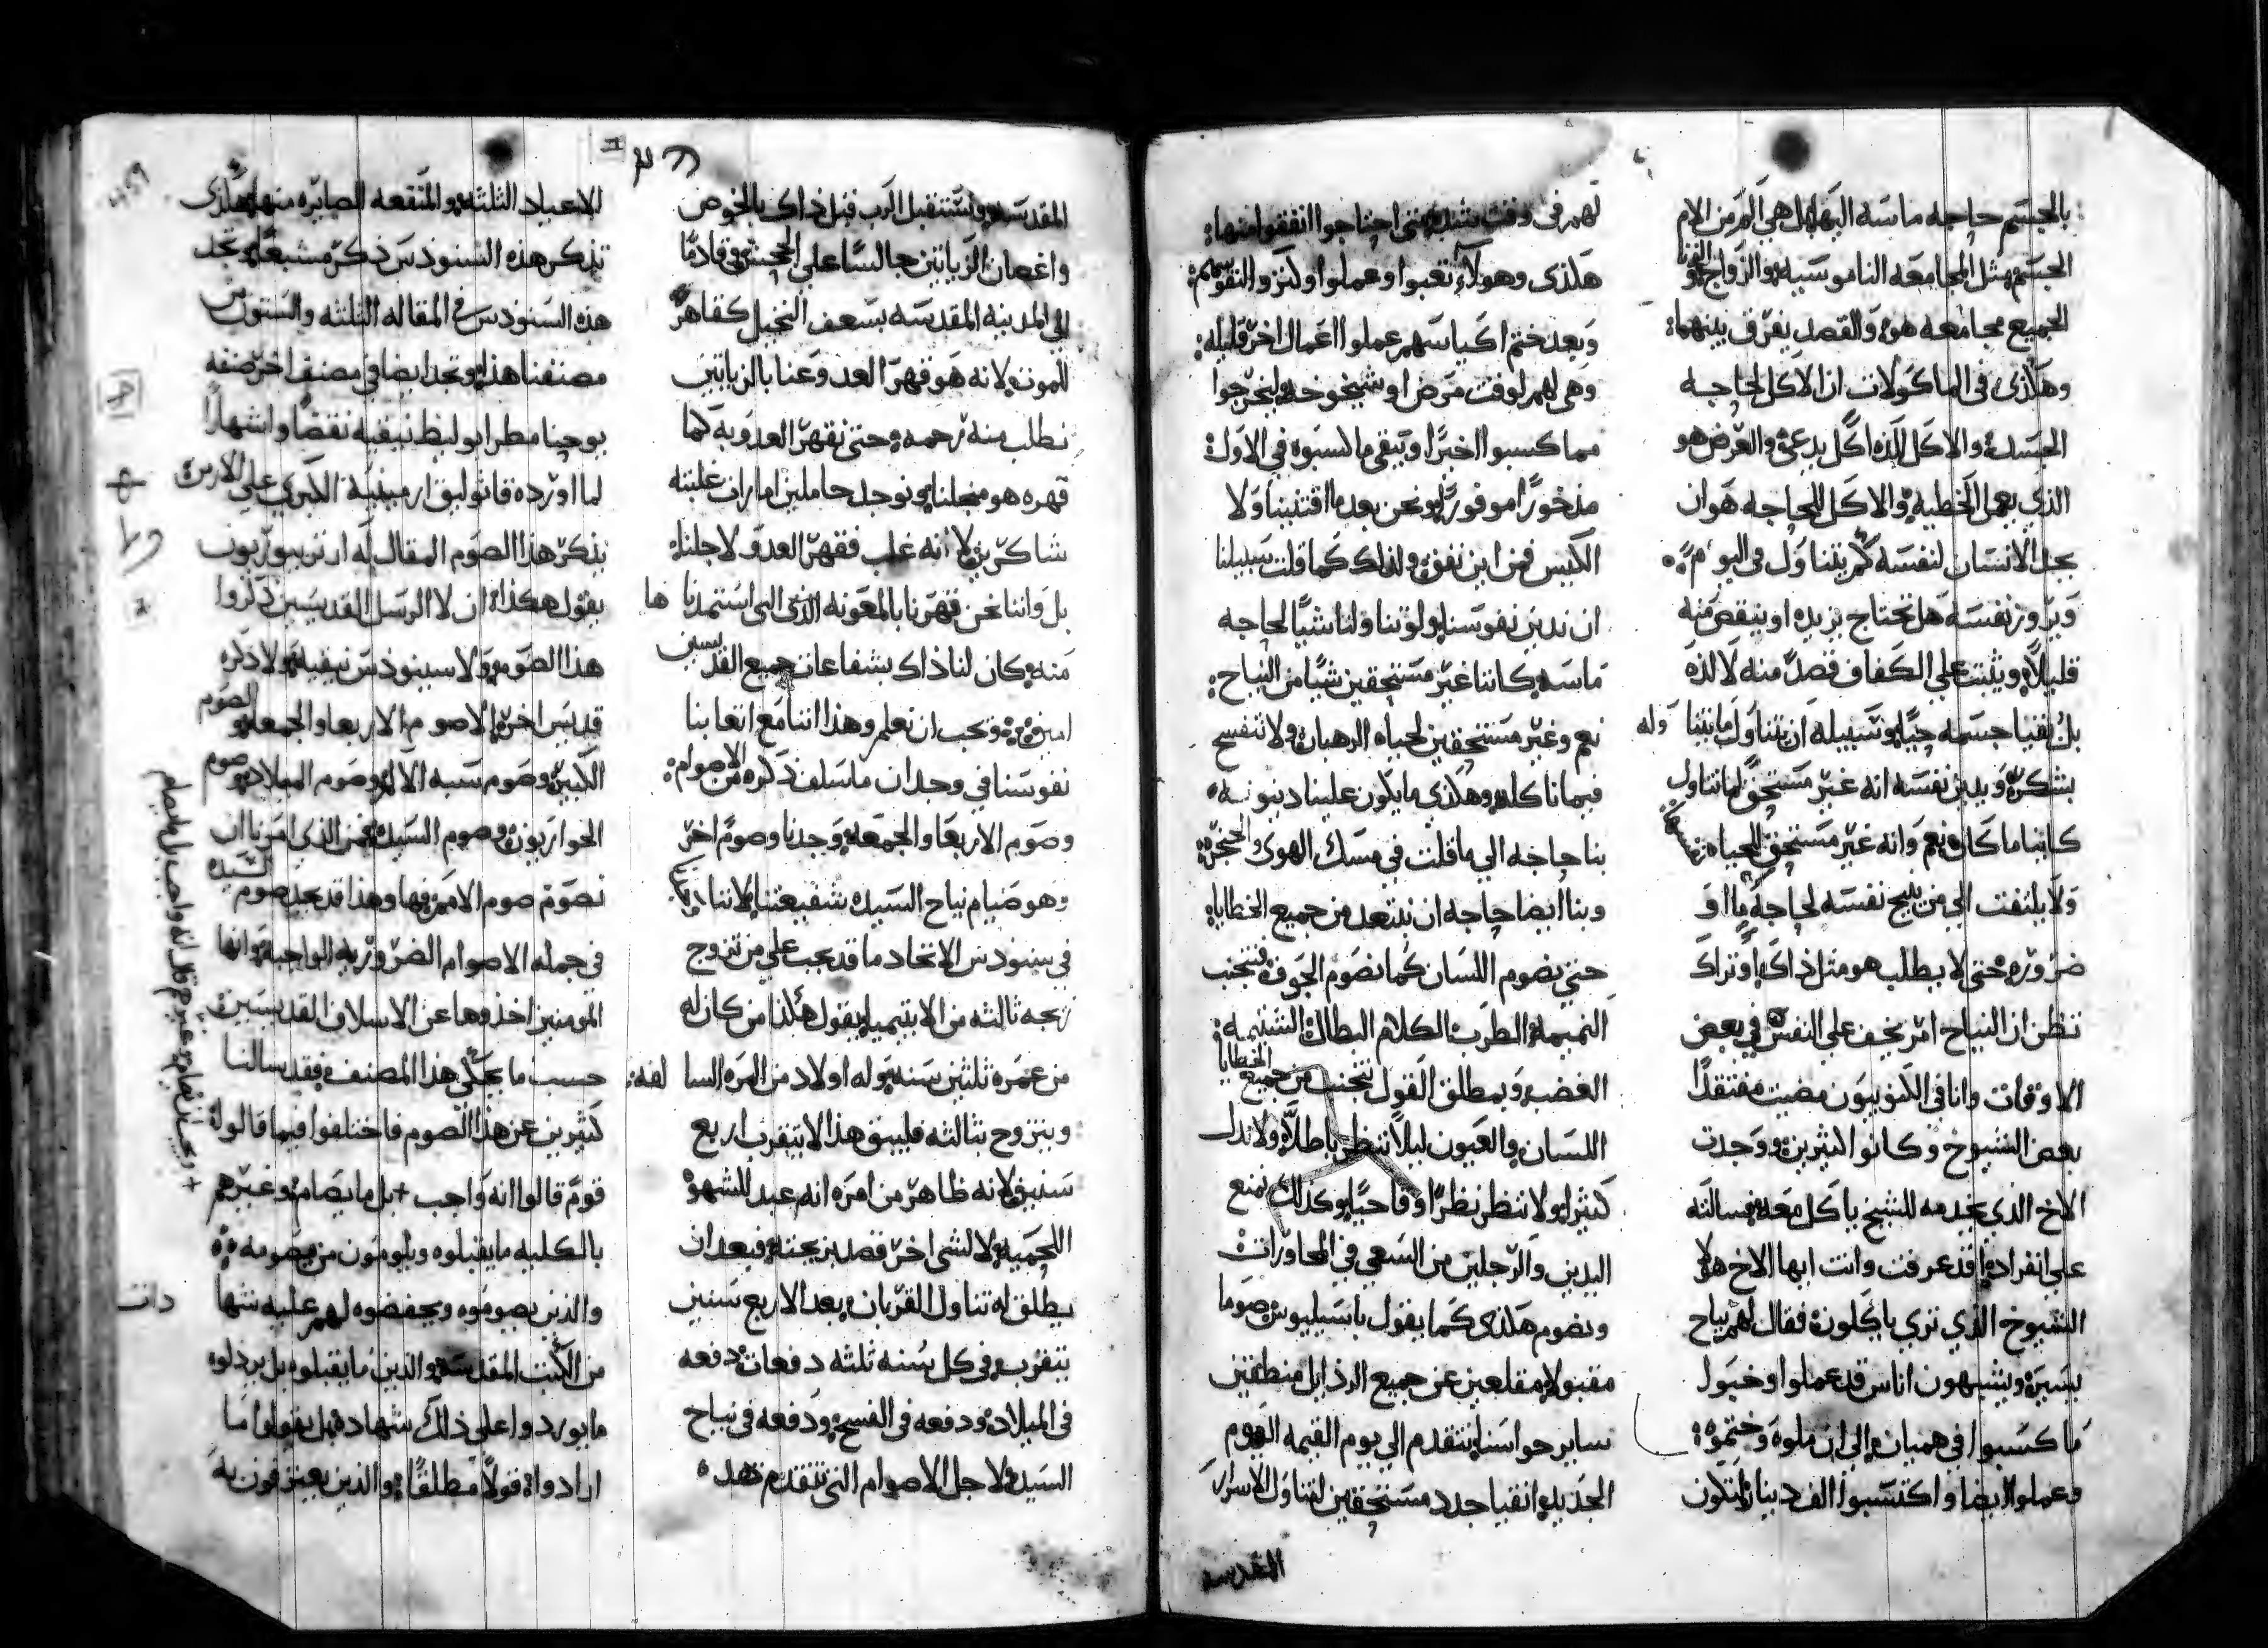 بالجسم حاجه ماسه اليها بل هي الم من الام
الجسم مثل المجامعه الناموسيه والزواج والزنا
الجميع مجامعه هو والقصد يفرق بينهما
وهكذى فى الماكولات ان الاكل لحاجه
الجسد والاكل للذه اكل يدعى والغرض هو
الذي يعمل الخطيه والاكل للحاجه هو ان
يجد الانسان لنفسه كم يتناول فى اليوم
ويروز نفسه هل تحتاج يزيده او ينقص منه
قليلا ويثبت على الكفاف قصد منه لا لذه
بل لقيا جسمه حيا وسبيله ان يتناول مايتنا وله
بشكر ويدين نفسه انه غير مستحق لما تناول
كاينا ما كان نعم وانه غير مستحق للحياه
ولا يلتفت الي من ينيح نفسه لحاجة ما او
ضروره حتى لا يطلب هو مثل ذاك او تراك
تظن ان النياح امر يخف على النفس في بعض
الاوقات وانا فى الكنوبيون مضيت مفتقدا
بعض الشيوخ وكانوا كثيرين ووجدت
الاخ الذي يخدمه للشيخ ياكل معه فسالته
على انفراد قد عرفت وانت ايها الاخ هولا
الشيوخ الذي تري ياكلون فقال لهم نياح
يسيره ويشبهون اناس قد عملوا وخبول
ما كسبوا في هميان الى ان ملوه وختموه
وعملوا ايضا واكتسبوا الف دينار لتكون
لهم فى وقت شده متى احتاجوا انفقوا منها
هكذى وهولاء تعبوا وعملوا وكنزوا لنفوسهم
وبعد ختم اكياسهم عملوا اعمال اخر قليله
وهي لهم لوقت مرض او شيخوخه ليخرجوا
مما كسبوا اخيرا وتبقى ما كسبوه في الاول
مذخورا موفورا ونحن بعد ما اقتنينا ولا
الكيس فمن اين ننفق ولذلك كما قلت سبيلنا
ان ندين نفوسنا ولو تناولنا شيا لحاجه
ماسه كاننا غير مستحقين شيا من النياح
نعم وغير مستحقين لحياه الرهبان ولا نتفسح
فيما ناكله وهكذى ما يكون علينا دينونه
بنا حاجه الي ما قلت في مسك الهوى والحنجره
وبنا ايضا حاجه ان نبتعد من جميع الخطايا
حتي نصوم اللسان كما نصوم الجوف فنتجنب
النميمه الطرب الكلام البطال الشتيمه
الغضب وبمطلق القول نتجنب من جميع الخطايا
اللسان والعيون ليلا تنظر باطلا ولا ندل
كثيرا ولا تنظر نظرا وقاحيا وكذلك نمنع
اليدين والرجلين من السعي في المحاورات
ونصوم هكذى كما يقول باسيليوس صوما
مقبولا مقلعين عن جميع الرذايل منطقين
ساير حواسنا نتقدم الي يوم القيمه اليوم
الجديد انقيا جدد مستحقين لتناول الاسرار
المقدسه
المقدسه ونستقبل الرب قبل ذاك بالخوص
واغصان الزياتين جالسا على الجحش وقادما
الى المدينه المقدسه بسعف النخيل كقاهر
للموت لانه هو قهر العدو عنا بالزياتين
نطلب منه رحمه حتى نقهر العدو به كما
قهره هو منحلنا ونوجد حاملين امارات غلبته
شاكرين لانه غلب فقهر العدو لاجلنا
بل واننا نحن قهرنا بالمعونه التى استمدنا ها
منه وكان لنا ذاك بشفاعات جميع القديسين
امين ويجب ان نعلم وهذا اننا مع اتعابنا
نفوسنا في وجدان ما سلف ذكره من الاصوام
وصوم الاربعا والجمعه وجدنا وصوم اخر
وهو صيام نياح السيده شفيعتنا لاننا
في سنودس الاتحاد ما قد يجب على من تزوج
زيجه ثالثه من الابتيميا يقول هكذا من كان له
من عمره ثلثين سنه وله اولاد من المره السا لفه
ويتزوج بثالثه فليبق هذا لا يتقرب اربع
سنين لانه ظاهر من امره انه عبد للشهوه
اللحميه لا لشى اخر قصد بزيجته فبعد ان
يطلق له تناول القربان بعد الاربع سنين
يتقرب فى كل سنه ثلثه دفعات دفعه
فى الميلاد ودفعه فى الفسح ودفعه في نياح
السيده لاجل الاصوام التي تتقدم هذه
الاعياد الثلثه والمنفعه الصايره منها هكذى
تذكر هذه السنودس ذكر مشبعا وتجد
هذه السنودس فى المقاله الثلثه والستون من
مصنفنا هذا وتجد ايضا في مصنف اخر صنفه
يوحنا مطرابوليط نيقيه نقضا واشهارا
لما اورده قاثوليق ارمينيه الكبرى على الارمن
يذكر هذا الصوم المقال له ارتزيبوريون
يقول هكذا ان لا الرسل القديسين ذكروا
هذا الصوم ولا سينودس نيقيه ولا ذكره
قديس اخر الا صوم الاربعا والجمعه والصوم
الكبير وصوم سبه الالام وصوم الميلاد وصوم
الحواريون وصوم السيده فمن الذي امرنا ان
نصوم صوم الارمن فها وهذا قد يجد صوم السيده
في جمله الاصوام الضروريه الواجبه وانها
المومنين اخذوها عن الاسلاف القديسين
حسب ما يحكى هذا المصنف فقد سالنا
كثيرين عن هذا الصوم فاختلفوا فيما قالوا
قوم قالوا انه واجب + بل ما يصام وغيرهم
بالكليه ما يقبلوه ويلومون من يصومه
والذين يصوموه ويحفضوه لهم عليه شها دات
من الكتب المقدسه والذين ما يقبلوه بل يرذلوه
ما يوردوا على ذلك شهاده بل يقولوا ما
ارادوا قولا مطلقا والذين يعترفون به